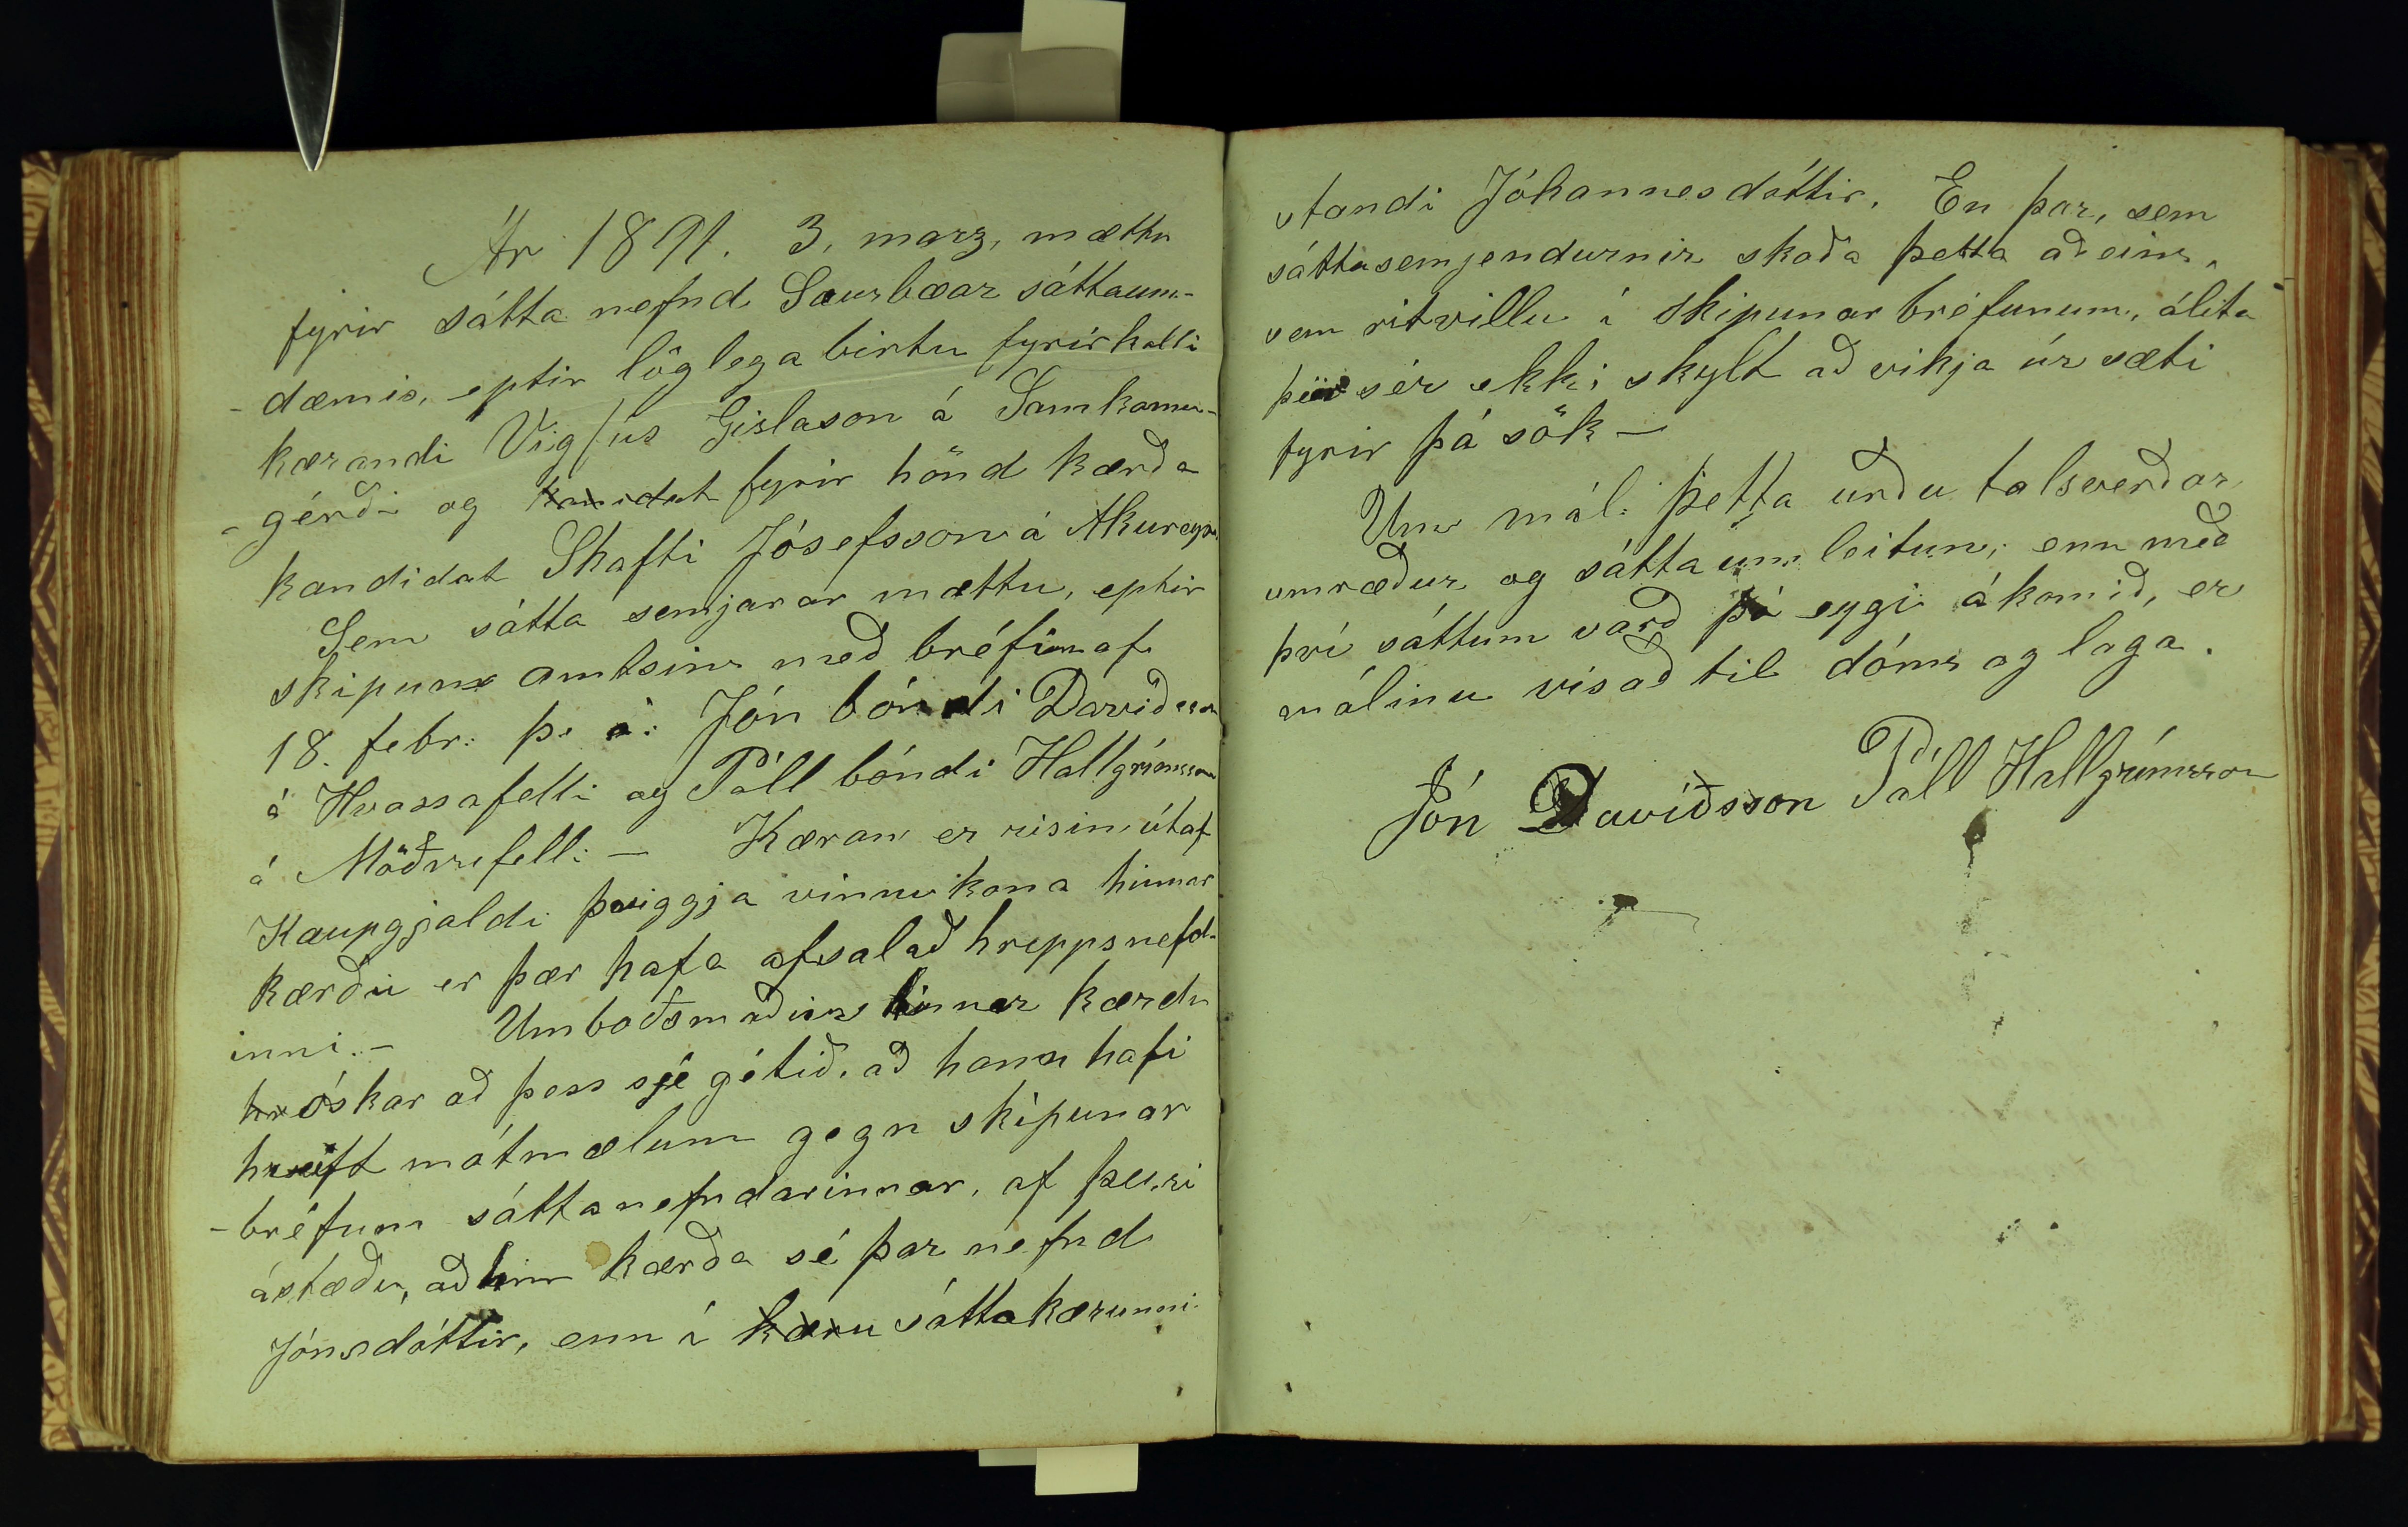 Ár 1891. 3, marz, mættu
fyrir sátta nefnd Saurbæar sáttaum-
-dæmis, eptir löglega birtu fyrirkalli
kærandi Vigfús Gíslason á Samkomu-
-gérði og kanidat fyrir hönd kærða
kandidat Skafti Jósefsson á Akureyri
Sem sátta semjarar mættu, eptir
skipun amtsins með bréfum af
18. febr: þ. á: Jón bóndi Davíðsson
á Hvassafelli og Páll bóndi Hallgrímsson
á Möðrufelli — Kæran er risin útaf
Kaupgjaldi þriggja vinnukona hinnar
kærðu er þær hafa afsalað hreppsnefd-
inni. — Umboðsmaður hinnar kærdu
hr óskar að þess sjé gétið, að hann hafi
hreift mótmælum gegn skipunar
-bréfum sáttanefndarinnar, af þeirri
ástæðu, að hin kærða sé þar nefnd
Jónsdóttir, enn í kæru sáttakærunni
standi Jóhannesdóttir, En þar, sem
sáttasemjendurnir skoða þetta aðeins,
sem ritvillu í skipunar bréfunum, álíta
þeir sér ekki skylt að víkja úr sæti
fyrir þá sök —
Um mál: þetta urðu talsverðar
umræður, og sáttaumleitun; enn með
því sáttum varð þá eygi ákomið, er
málinu vísað til dóms og laga.
Jón Davíðsson Páll Hallgrímsson